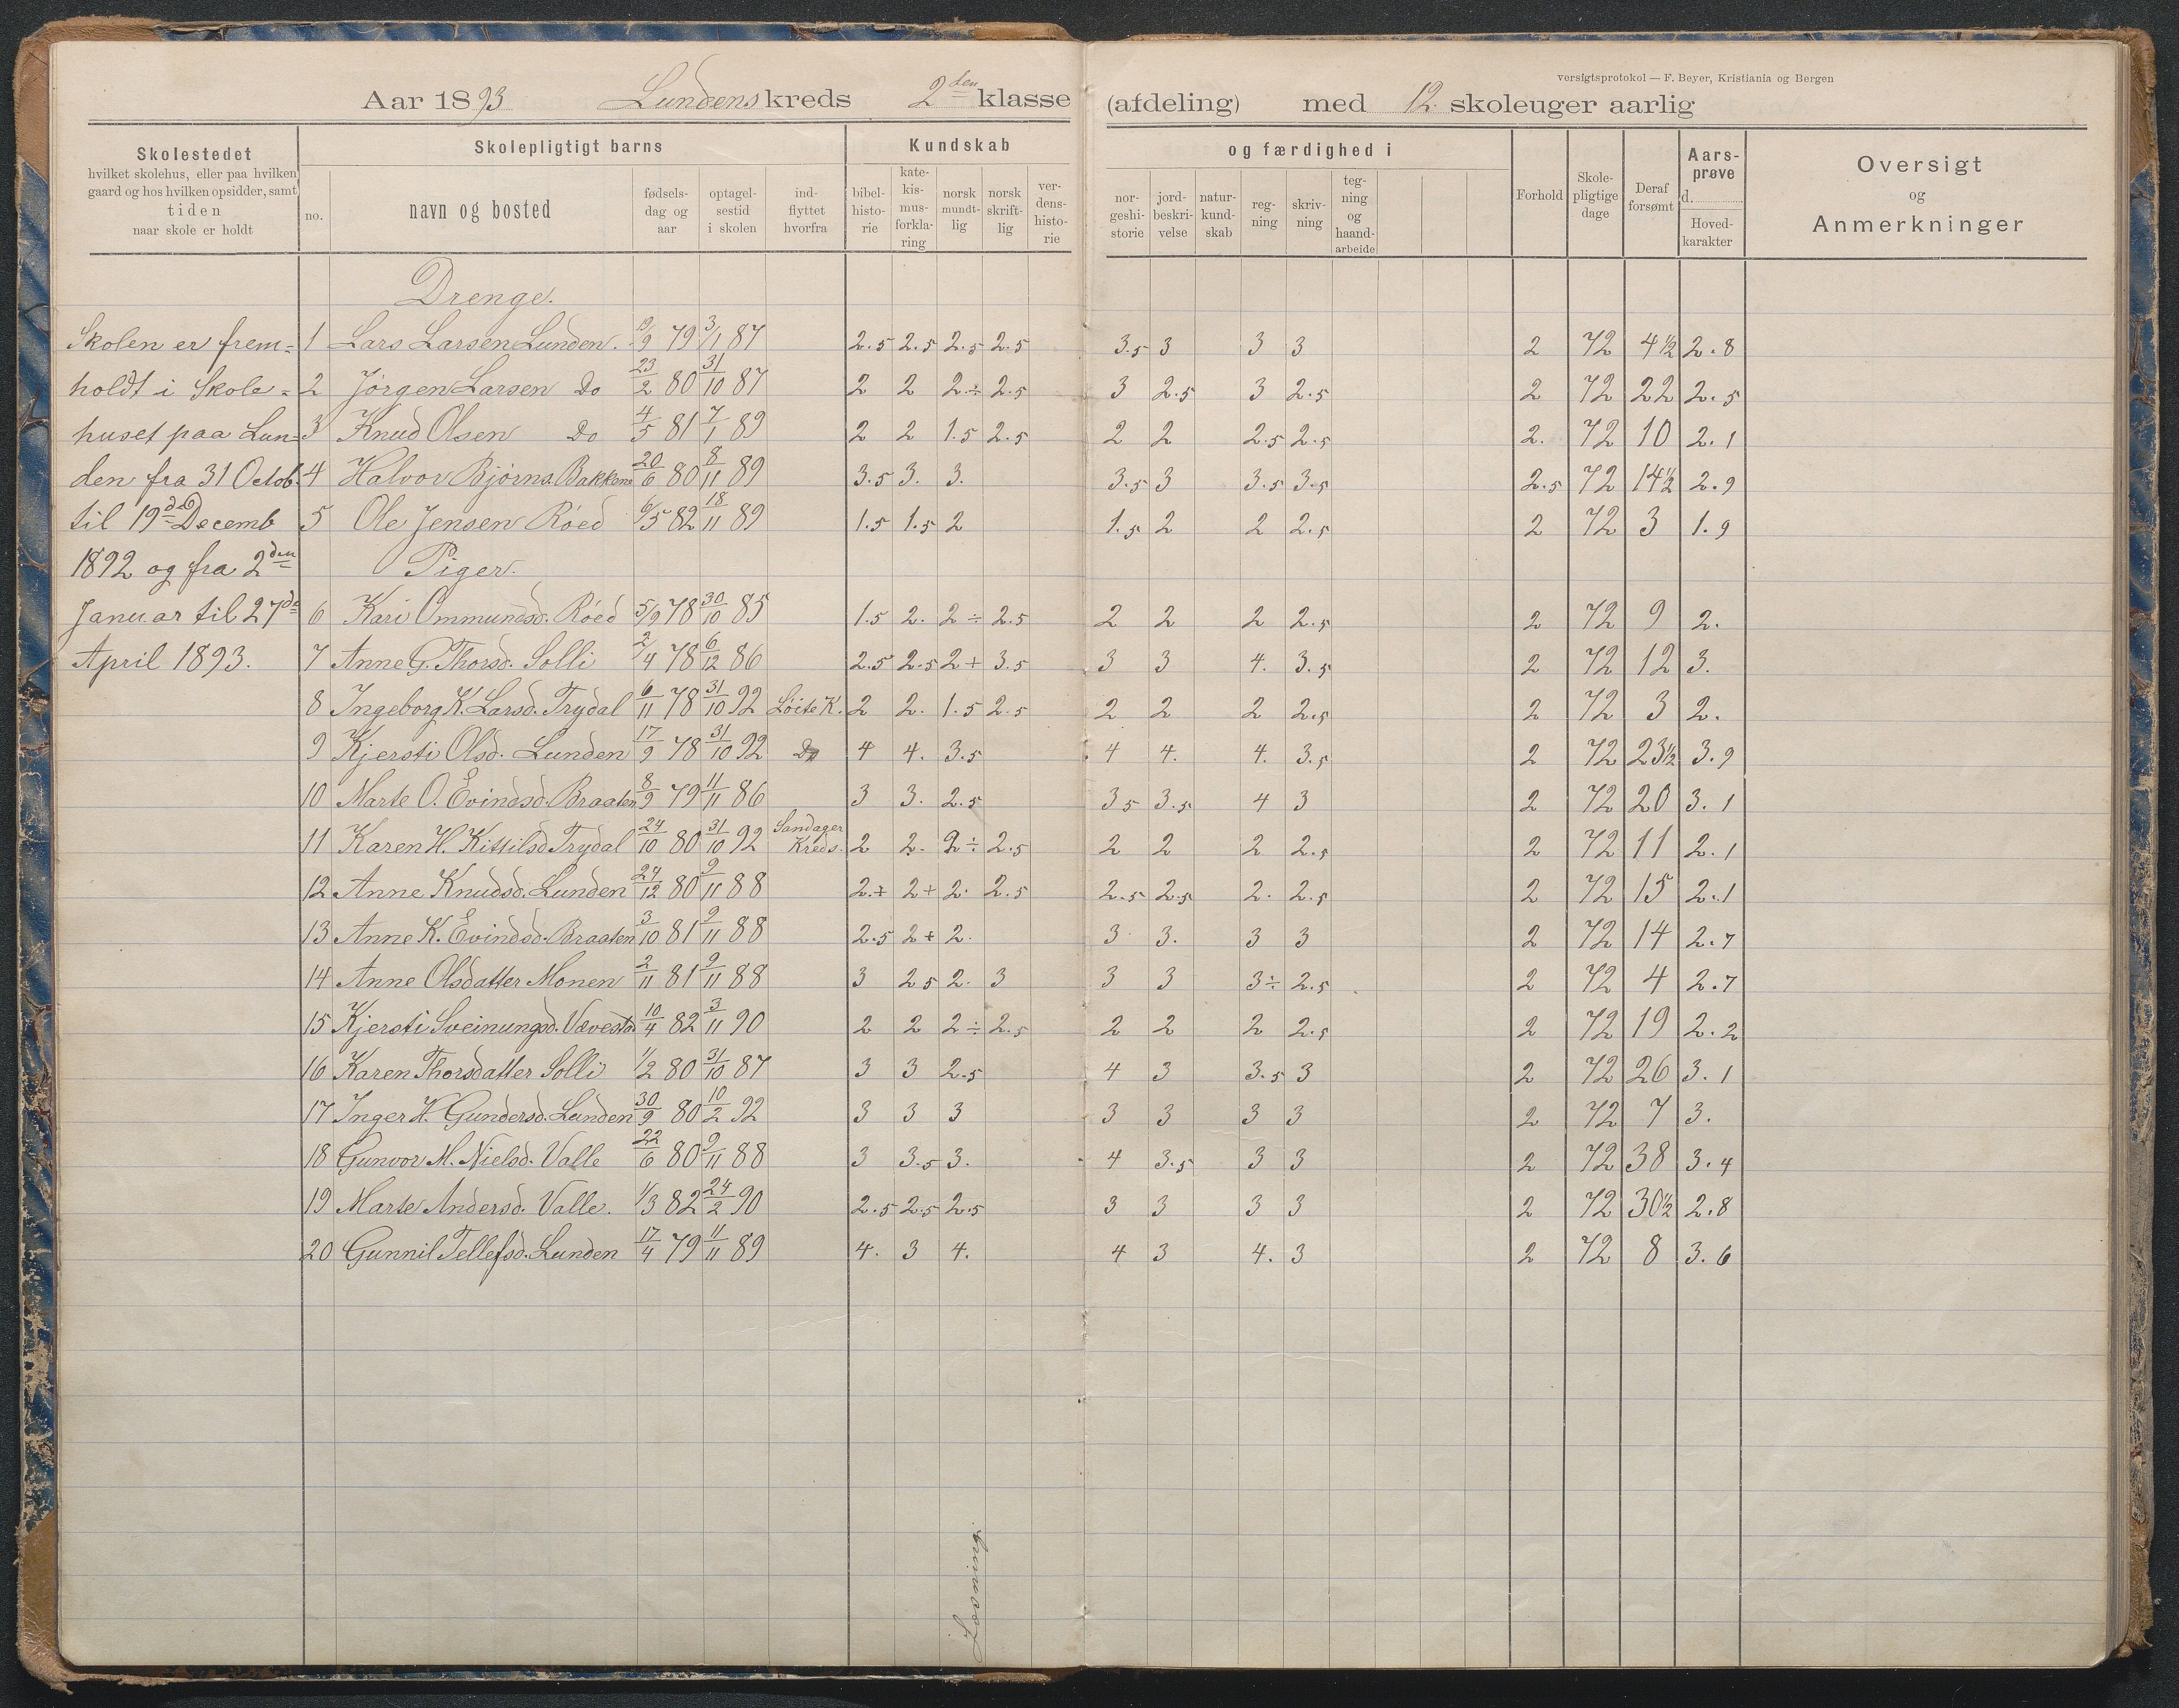 versigtsprotokol — F. Beyer, Kristiania og Bergen
Aar 1893 Lundens kreds 2den klasse (afdeling) med 12. skoleuger aarlig
Skolestedet
hvilket skolehus, eller paa hvilken
gaard og hos hvilken opsidder, samt
tiden
naar skole er holdt
Skolepligtigt barns
no. navn og bosted fødsels-dag og aar optagel-sestid i skolen ind-flyttet hvorfra
Kundskab og færdighed i
bibel-histo-rie kate-kis-mus-forkla-ring norsk mundt-lig norsk skrift-lig ver-dens-histo-rie nor-geshi-storie jord-beskri-velse natur-kund-skab reg-ning skriv-ning teg-ning og haand-arbeide
Forhold Skole-pligtige dage Deraf forsømt Aars-prøve d. Hoved-karakter
Oversigt
og
Anmerkninger
Skolen er frem=
holdt i Skole=
huset paa Lun=
den fra 31 Octob.
til 19de Decemb
1892 og fra 2den
Januar til 27de
April 1893.
Drenge.
1 Lars Larsen Lunden. 19/9 79 3/1 87 2.5 2.5 2.5 2.5 3.5 3 3 3 2 72 4½ 2.8
2 Jørgen Larsen Do 23/2 80 31/10 87 2 2 2.÷ 2.5 3 2.5 3 2.5 2 72 22 2.5
3 Knud Olsen Do 4/5 81 7/1 89 2 2 1.5 2.5 2 2 2.5 2.5 2. 72 10 2.1
4 Halvor Bjørns. Bakkene 20/6 80 8/11 89 3.5 3. 3. 3.5 3 3.5 3.5 2.5 72 14½ 2.9
5 Ole Jensen Røed 6/5 82 18/11 89 1.5 1.5 2 1.5 2 2 2.5 2 72 3 1.9
Piger.
6 Kari Ommundsd. Røed 5/9 78 30/10 85 1.5 2. 2 ÷ 2.5 2 2 2 2.5 2 72 9 2.
7 Anne G. Thorsd. Solli 2/4 78 6/12 86 2.5 2.5 2+ 3.5 3 3 4. 3.5 2 72 12 3.
8 Ingeborg K. Larsd. Trydal 6/11 78 31/10 92 Løite K. 2 2. 1.5 2.5 2 2 2 2.5 2 72 3 2.
9 Kjersti Olsd. Lunden 17/9 78 31/10 92 Do 4 4. 3.5 4 4. 4. 3.5 2 72 23½ 3.9
10 Marte O. Evindsd. Braaten 8/9 79 11/11 86 3 3. 2.5 3 5 3.5 4 3 2 72 20 3.1
11 Karen H. Kittilsd Trydal 24/10 80 31/10 92 Sandager Kreds. 2 2. 2÷ 2.5 2 2 2 2.5 2 72 11 2.1
12 Anne Knudsd. Lunden 24/12 80 9/11 88 2.+ 2+ 2. 2.5 2.5 2.5 2. 2.5 2 72 15 2.1
13 Anne K. Evindsd. Braaten 3/10 81 9/11 88 2.5 2+ 2. 3 3. 3 3 2 72 14 2.7
14 Anne Olsdatter Monen 2/11 81 9/11 88 3 2 5 2. 3 3 3 3÷ 2.5 2 72 4 2.7
15 Kjersti Sveinungsd. Vævestad 10/4 82 3/11 90 2 2 2÷ 2.5 2 2 2 2.5 2 72 19 2.2
16 Karen Thorsdatter Solli 1/2 80 31/10 87 3 3 2.5 4 3 3.5 3 2 72 26 3.1
17 Inger H. Gundersd. Lunden 30/9 80 10/2 92 3 3 3 3 3 3 3 2 72 7 3.
18 Gunvor M. Nielsd. Valle 22/6 80 9/11 88 3 3.5 3. 4 3.5 3 3 2 72 38 3.4
19 Marte Andersd. Valle. 1/3 82 24/2 90 2.5 2.5 2.5 3 3 3 3 2 72 30½ 2.8
20 Gunnil Tellefsd. Lunden 17/4 79 11/11 89 4. 3 4. 4 3 4. 3 2 72 8 3.6
Læsning.